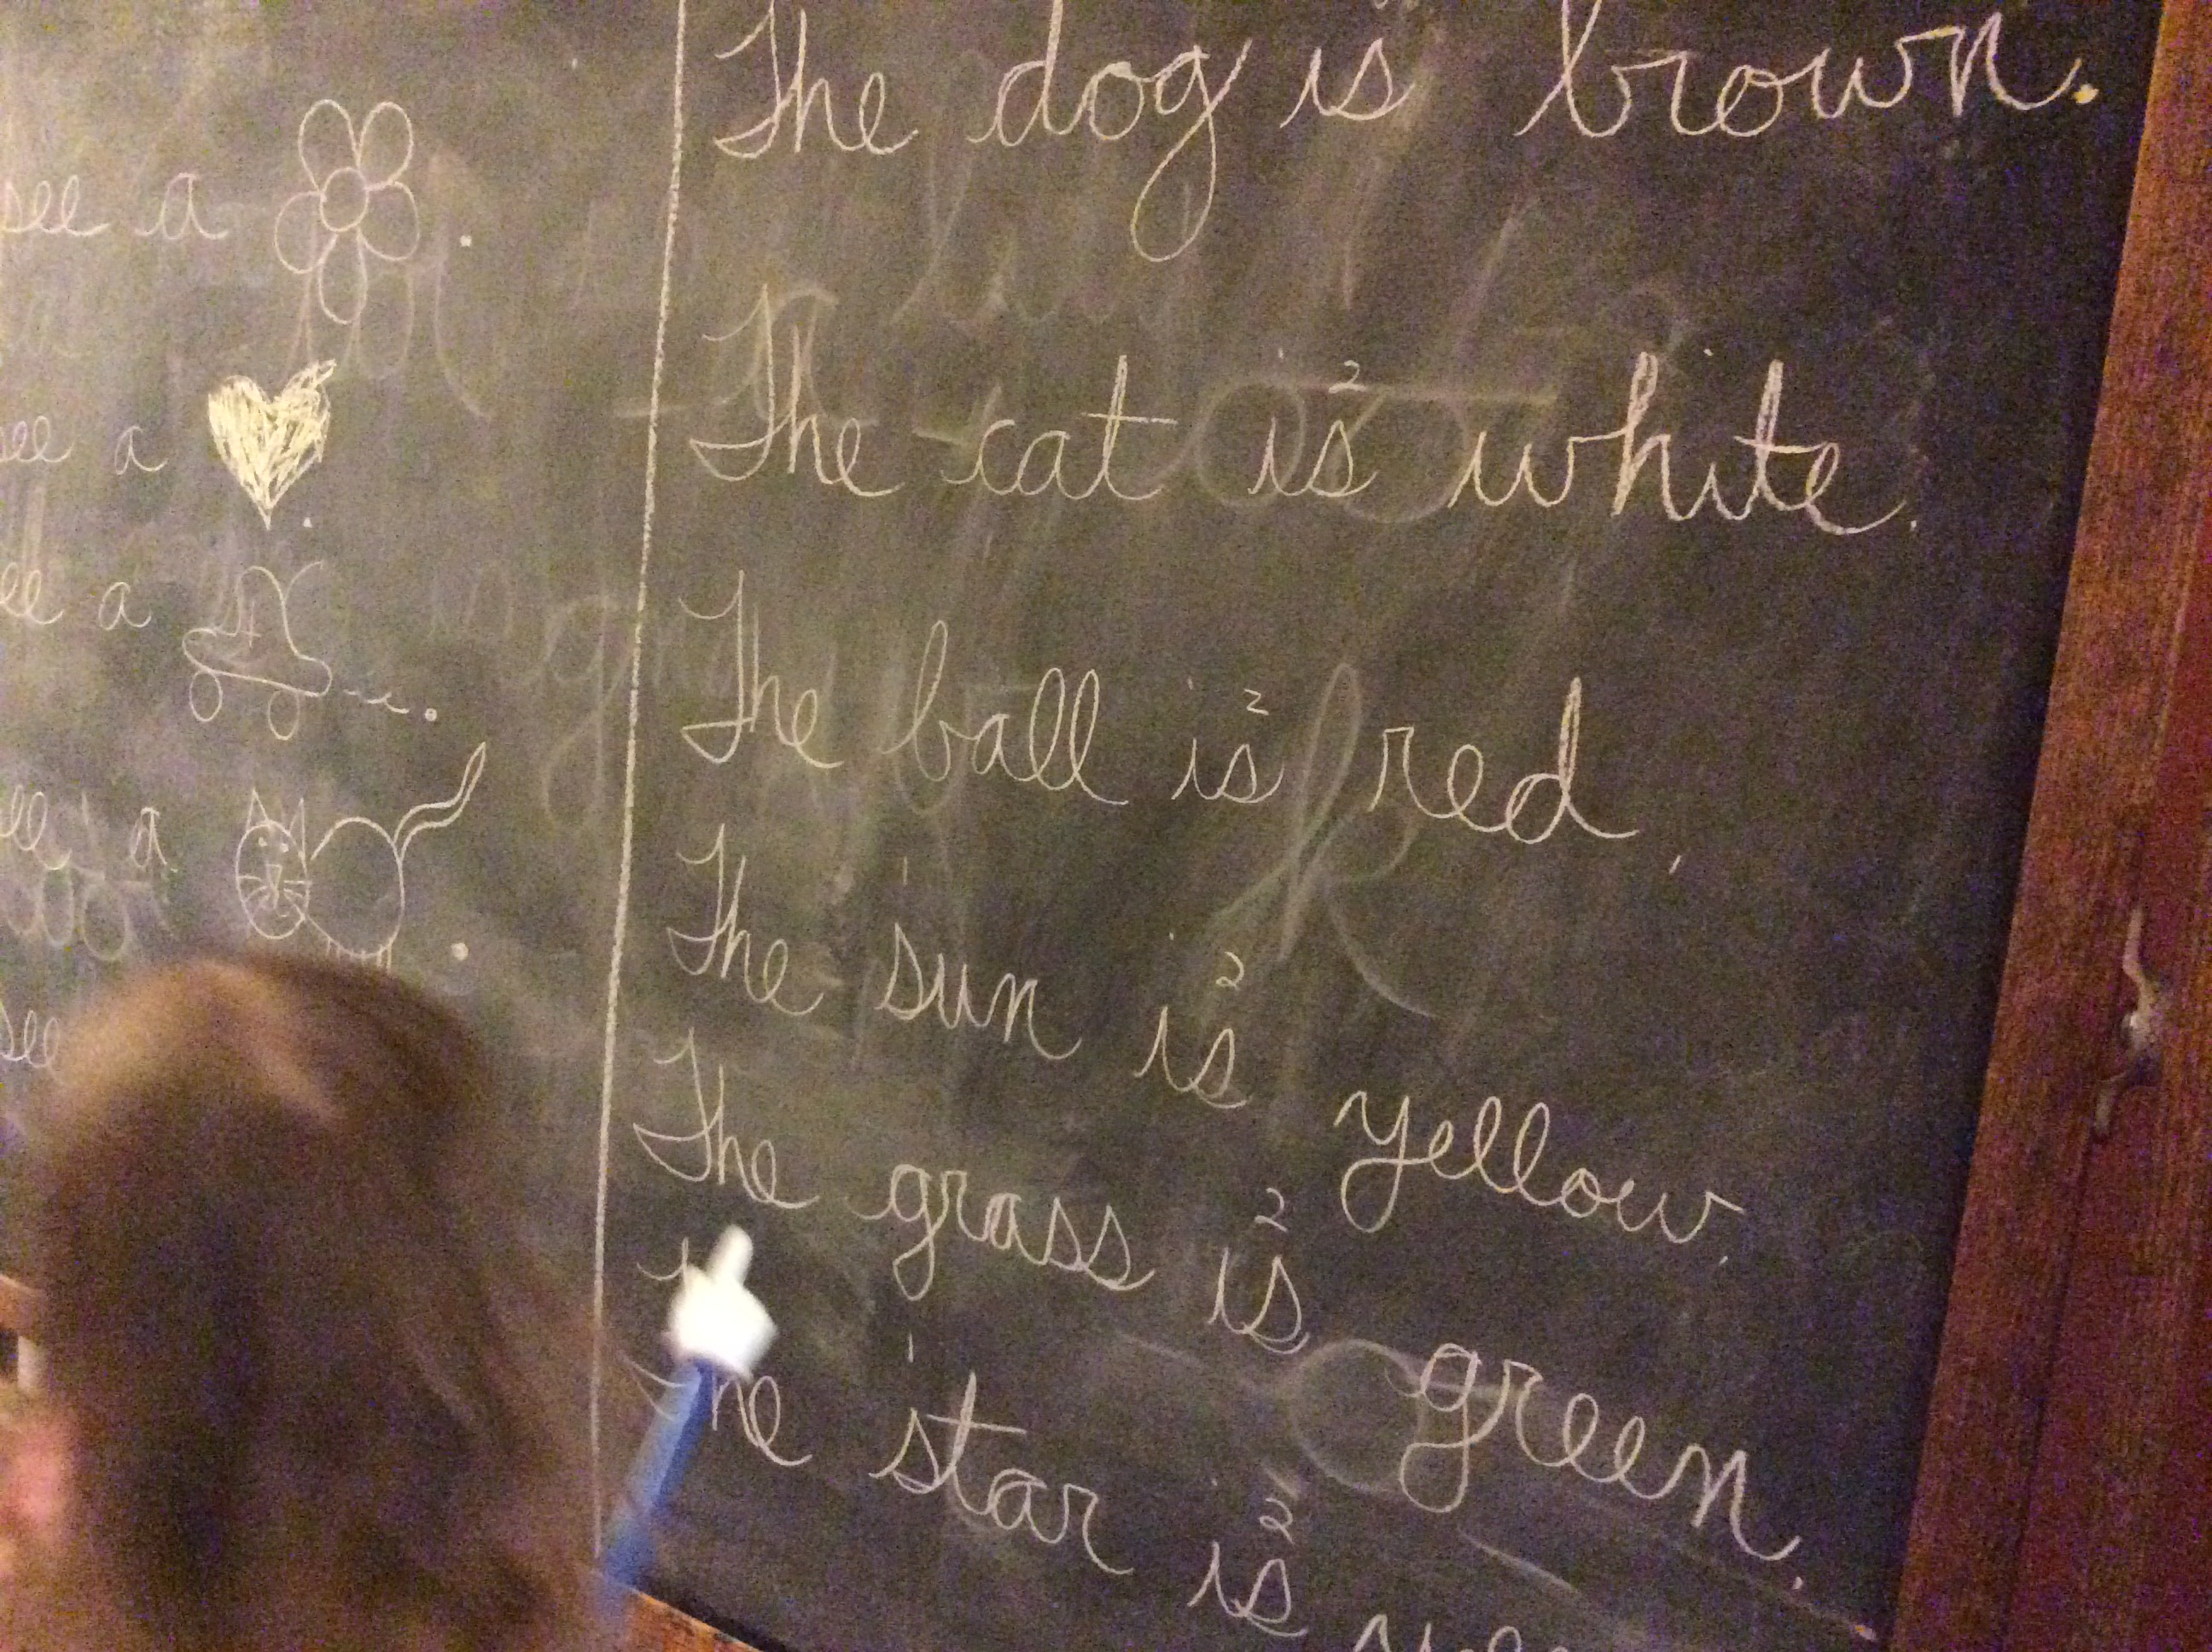 see a
see a
a
a
see
The dog is brown.
2
The cat is white.
2
The ball is red.
2
The sun is yellow.
2
The grass is green.
2
The star is